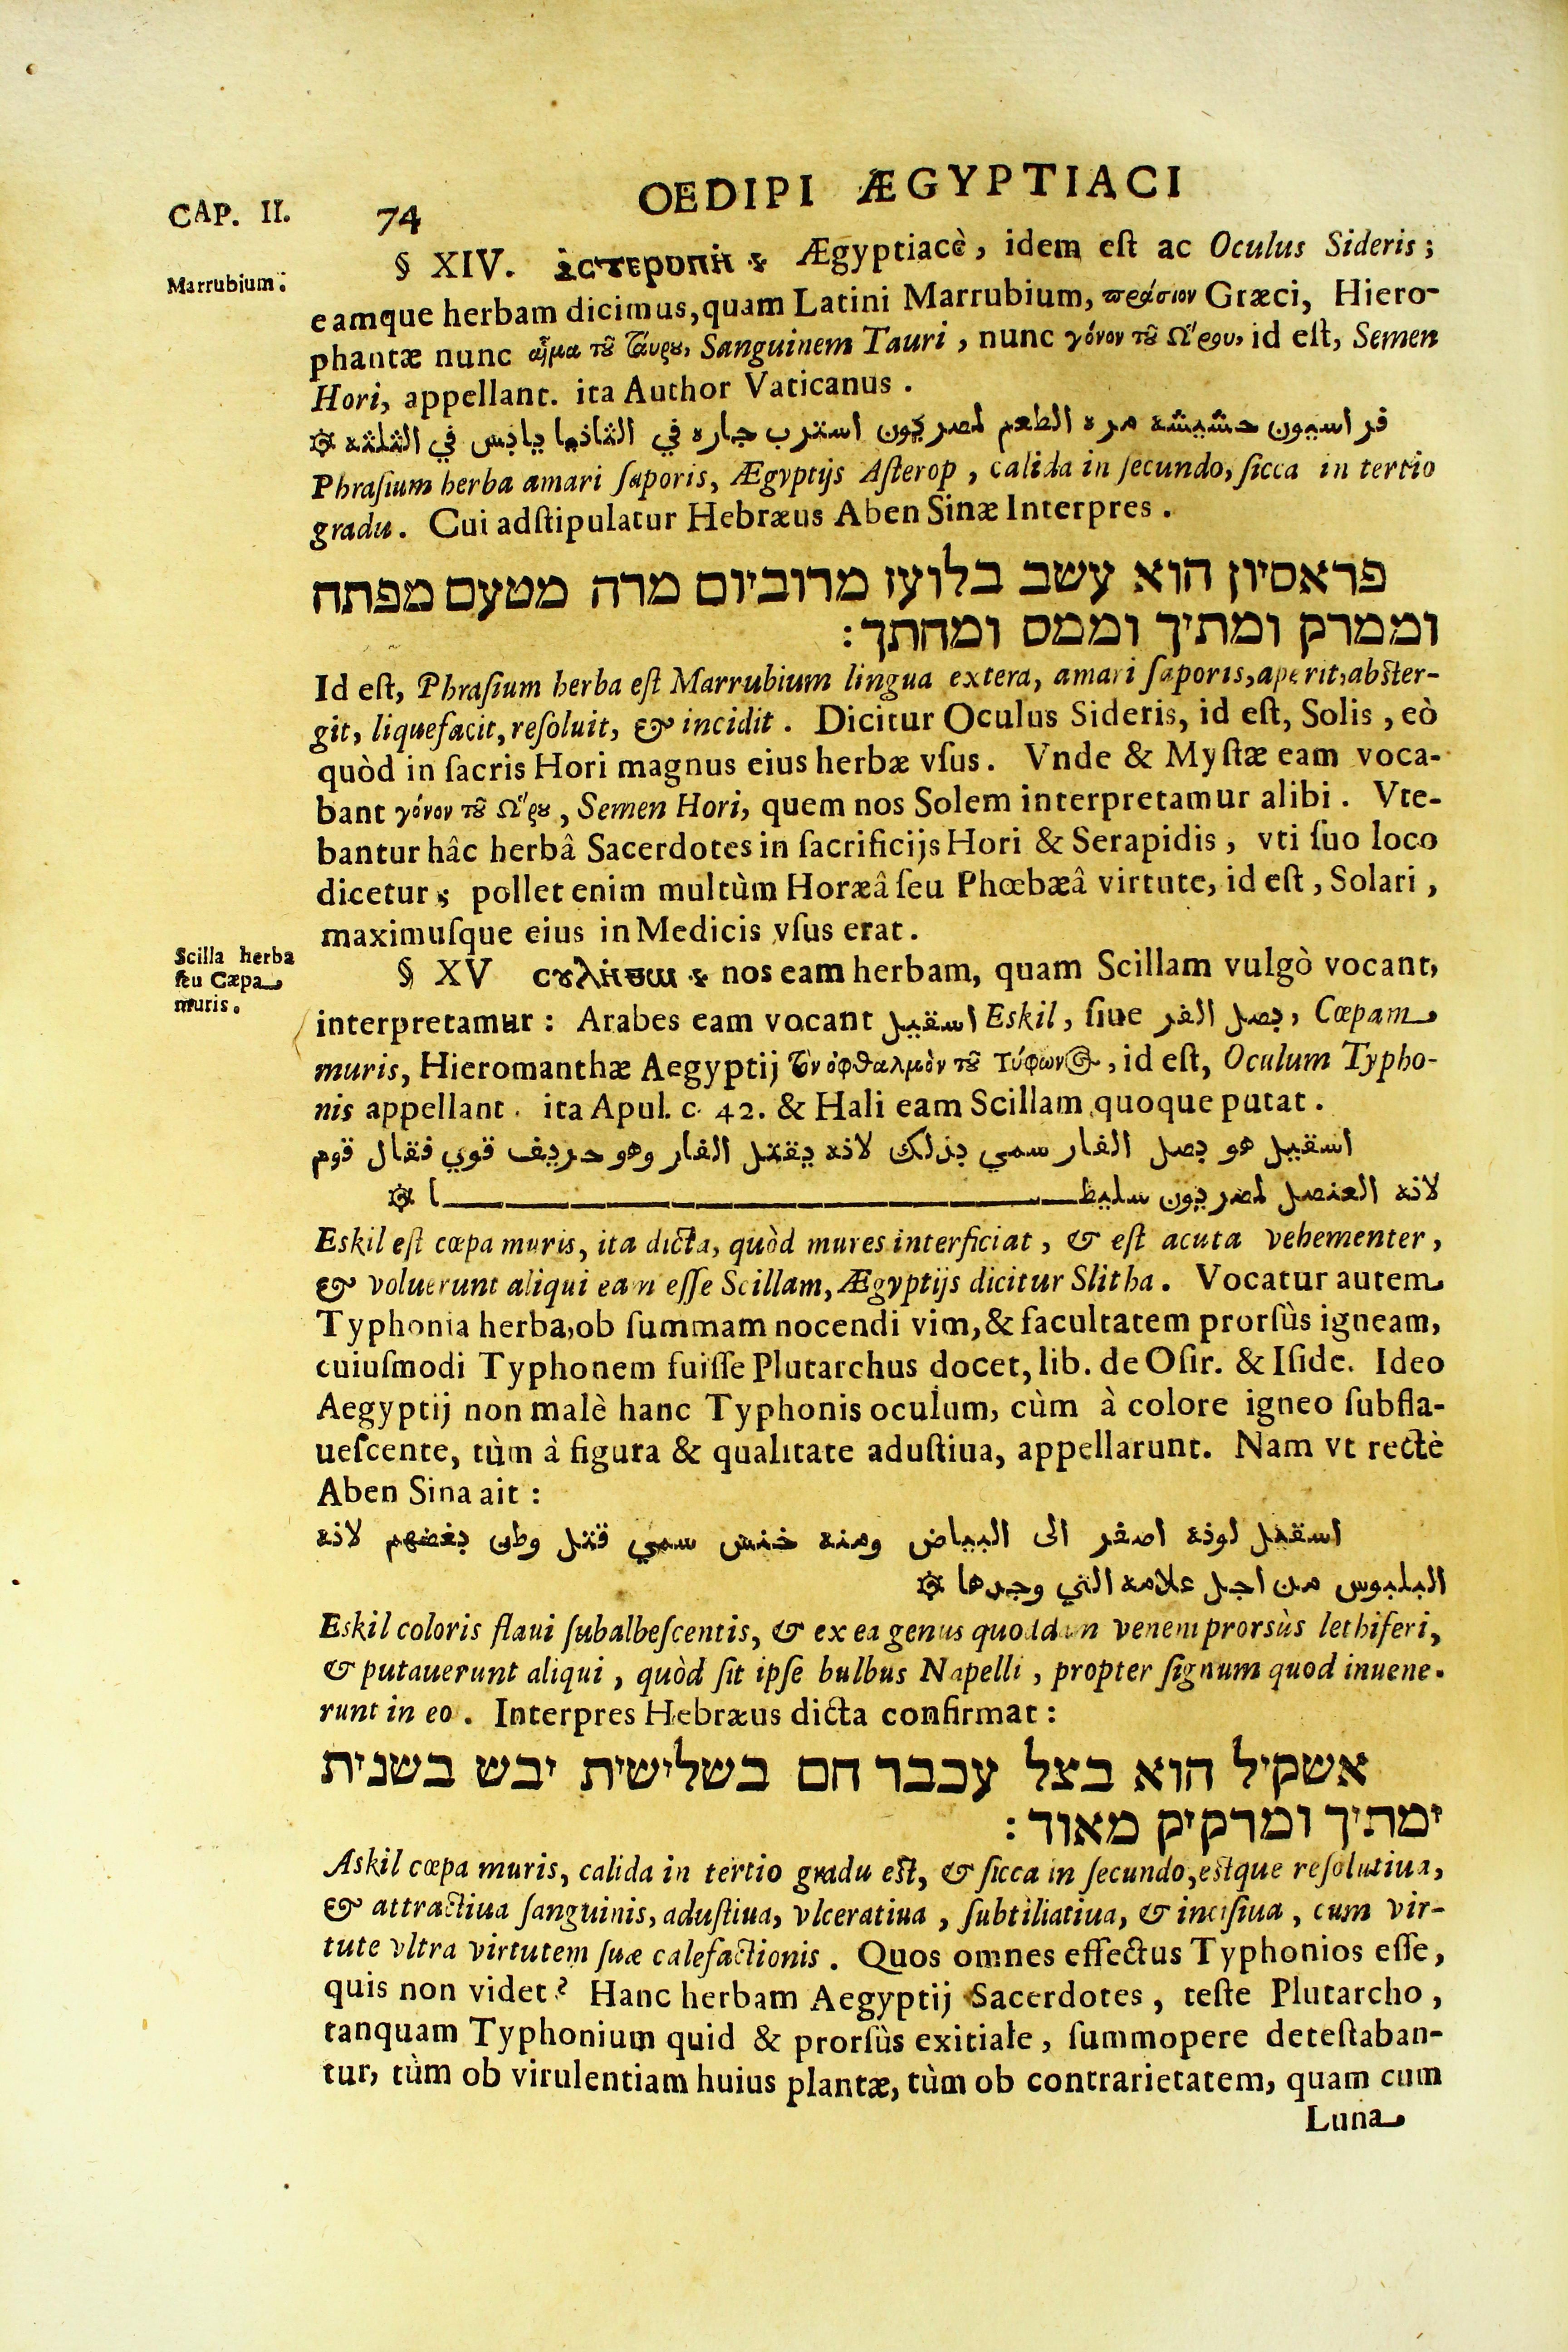 OEDIPI ÆGYPTIACI
CAP. II. 74
§ XIV. Ægyptiacè, idem eſt ac Oculus Sideris;
Marrubium.
eamque herbam dicimus, quam Latini Marrubium, πράσιον Græci, Hiero-
phantæ nunc αἷμα τοῦ Ταύρου, Sanguinem Tauri, nunc γόνον τοῦ Ὥρου, id eſt, Semen
Hori, appellant. ita Author Vaticanus.
فراسيون حشيشه مره الطعم لمصريون استرب جاره في الثانيا يابس في الثلثه ۞
Phraſium herba amari ſaporis, Ægyptijs Aſterop, calida in ſecundo, ſicca in tertio
gradu. Cui adſtipulatur Hebræus Aben Sinæ Interpres.
פראסיון הוא עשב בלועז מרוביום מרה מטעם מפתח
וממרק ומתיך וממס ומחתך:
Id eſt, Phraſium herba eſt Marrubium lingua extera, amari ſaporis, aperit, abſter-
git, liquefacit, reſoluit, & incidit. Dicitur Oculus Sideris, id eſt, Solis, eò
quòd in ſacris Hori magnus eius herbæ vſus. Vnde & Myſtæ eam voca-
bant γόνον τοῦ Ὥρου, Semen Hori, quem nos Solem interpretamur alibi. Vte-
bantur hâc herbâ Sacerdotes in ſacrificijs Hori & Serapidis, vti ſuo loco
dicetur; pollet enim multùm Horæâ ſeu Phœbæâ virtute, id eſt, Solari,
maximuſque eius in Medicis vſus erat.
Scilla herba
ſeu Cæpa
muris.
§ XV nos eam herbam, quam Scillam vulgò vocant,
interpretamur: Arabes eam vocant اسقيل Eskil, ſiue بصل الفر, Cœpam
muris, Hieromanthæ Aegyptij τὸν ὀφθαλμὸν τοῦ Τύφωνος, id eſt, Oculum Typho-
nis appellant. ita Apul. c. 42. & Hali eam Scillam quoque putat.
اسقيل هو بصل الفار سمي بذلك لانه يقتل الفار وهو حريف قوي فقال قوم
لانه العنصل لمصريون سليطا ۞
Eskil eſt cœpa muris, ita dicta, quòd mures interficiat, & eſt acuta vehementer,
& voluerunt aliqui eam eſſe Scillam, Ægyptijs dicitur Slitha. Vocatur autem
Typhonia herba, ob ſummam nocendi vim, & facultatem prorſùs igneam,
cuiuſmodi Typhonem fuiſſe Plutarchus docet, lib. de Oſir. & Iſide. Ideo
Aegyptij non malè hanc Typhonis oculum, cùm à colore igneo ſubfla-
ueſcente, tùm à figura & qualitate aduſtiua, appellarunt. Nam vt rectè
Aben Sina ait:
اسقيل لونه اصفر الى البياض ومنه خنس سمي قتل وظن بغضهم لانه
البلبوس من اجل علامه التي وجدها ۞
Eskil coloris flaui ſubalbeſcentis, & ex ea genus quoddam veneni prorſùs lethiferi,
& putauerunt aliqui, quòd ſit ipſe bulbus Napelli, propter ſignum quod inuene-
runt in eo. Interpres Hebræus dicta confirmat:
אשקיל הוא בצל עכבר חם בשלישית יבש בשנית
ימתיך ומרקיק מאוד:
Askil cœpa muris, calida in tertio gradu eſt, & ſicca in ſecundo, eſtque reſolutiua,
& attractiua ſanguinis, aduſtiua, vlceratiua, ſubtiliatiua, & inciſiua, cum vir-
tute vltra virtutem ſuæ calefactionis. Quos omnes effectus Typhonios eſſe,
quis non videt? Hanc herbam Aegyptij Sacerdotes, teſte Plutarcho,
tanquam Typhonium quid & prorſùs exitiale, ſummopere deteſtaban-
tur, tùm ob virulentiam huius plantæ, tùm ob contrarietatem, quam cum
Luna